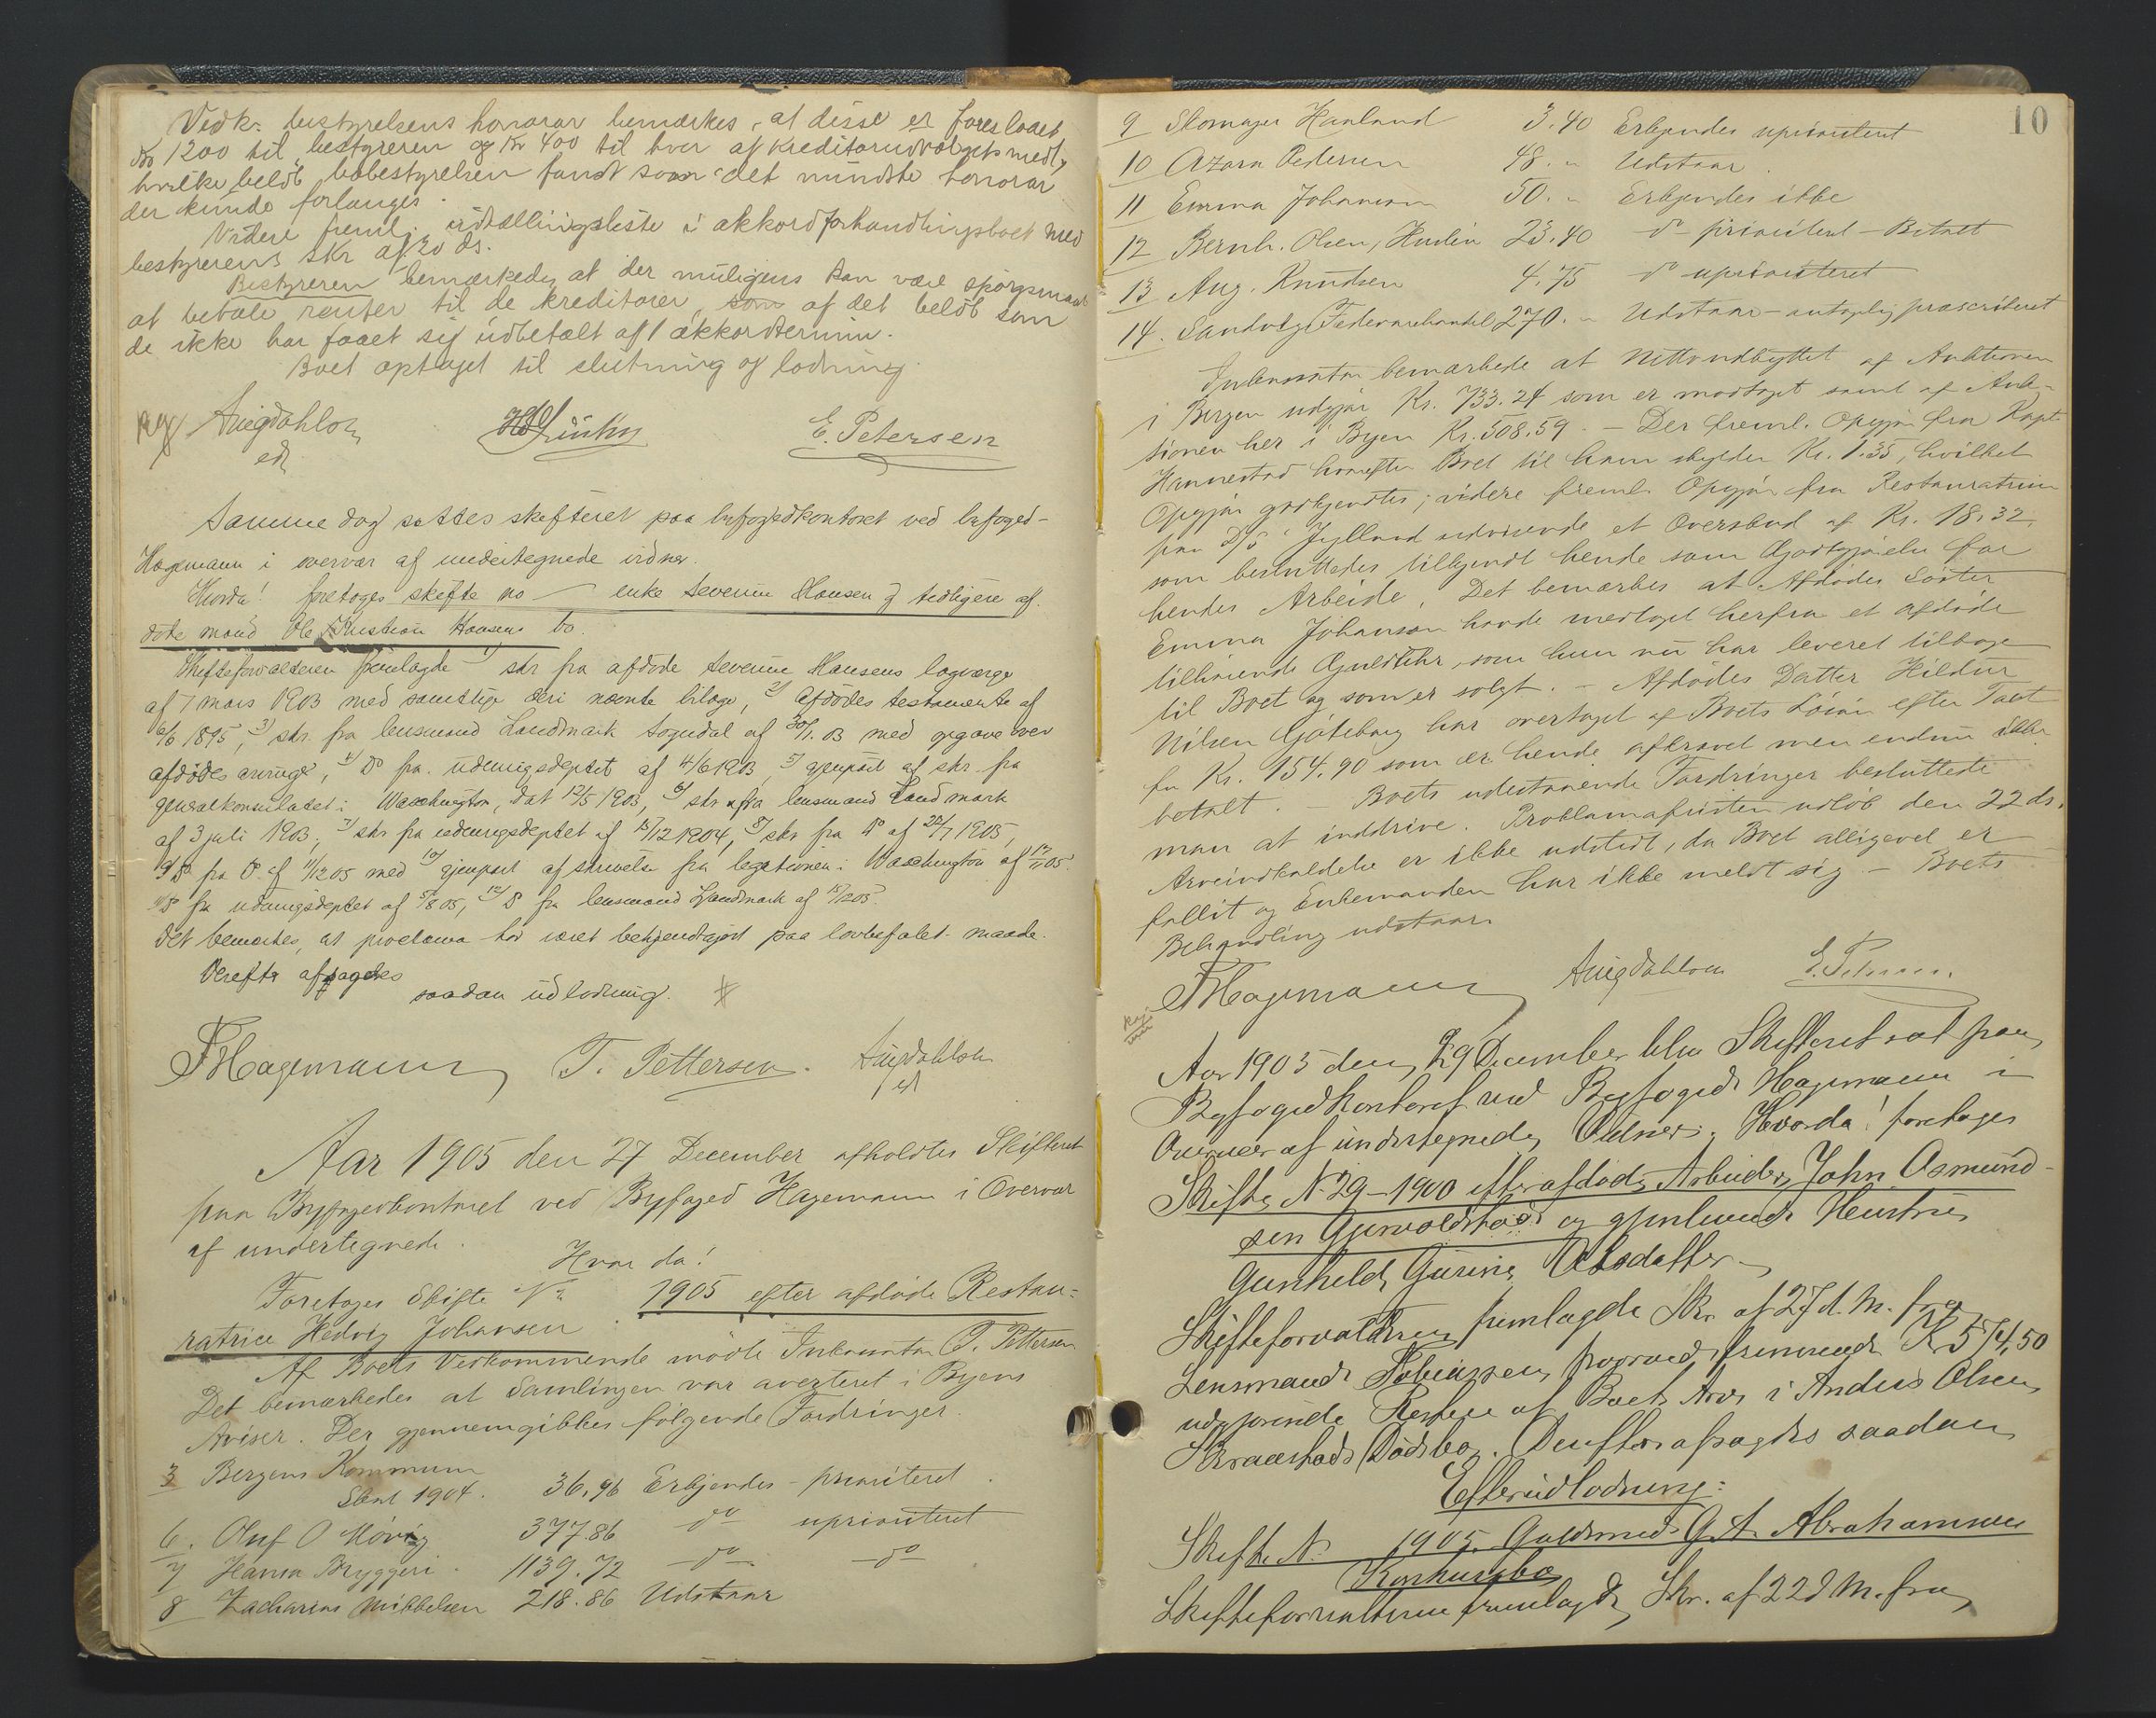 Vedk. bestyrelsens honorar bemærkes, at disse er foreslaaet
Kr 1200 til bestyreren og Kr 400 til hver af kreditorudvalgets medl.,
hvilke beløb bobestyrelsen fandt som det mindste honorar
der kunde forlanges.
Videre freml. udtællingsliste i akkordforhandlingsboet med
bestyrerens skr af 20 ds.
Bestyreren bemærkede, at der muligens kan være spørgsmaal
at betale renter til de kreditorer, som af det beløb som
de ikke har faaet sig udbetalt af 1 akkordtermin.
Boet optaget til slutning og lodning.
E. Petersen
Samme dag sattes skifteret paa byfogedkontoret ved byfoged-
Hagemann i overvær af undertegnede vidner.
Hvorda! foretoges skifte no — enke Severine Hansen og tidligere af-
døde mand Ole Kristian Hansens bo.
Skifteforvalteren fremlagde 1) skr fra afdøde Severine Hansens lagværge
af 7 mars 1903 med samtlige deri nævnte bilage, 2) afdødes testamente af
6/6 1895, 3) skr. fra lensmand Landmark Sogndal af 30/1. 03 med opgave over
afdødes arvinge, 4) Do fra udenrigsdeptet af 4/6 1903, 5) gjenpart af skr. fra
generalkonsulatet i Waschington, dat 12/5 1903, 6) skr fra lensmand Landmark
af 3 juli 1903, 7) skr fra udenrigsdeptet af 15/12 1904, 8) skr fra do af 24/7 1905,
9) do fra do af 11/12 05 med 10) gjenpart af skrivelse fra legationen i Waschington af 17/11 05.
11) do fra udenrigsdeptet af 5/8 05, 12) do fra lensmand Landmark af 15/12 05.
Det bemærkes, at proclama har været bekjendtgjort paa lovbefalet maade.
Derefter afsagdes
saadan udlodning.
FHagemann T. Pettersen.
Aar 1905 den 27 December afholdtes Skifteret
paa Byfogedkontoret ved Byfoged Hagemann i Overvær
af undertegnede.
Hvor da!
Foretoges Skifte No 1905 efter afdøde Restau-
ratrice Hedvig Johansen
Af Boets Vedkommende mødte Inkassator T. Pettersen
Det bemærkedes at Samlingen var averteret i Byens
Aviser. Der gjennemgikkes følgende Fordringer.
3 Bergens Kommune
Skat 1904. 36,96 Erkjendes - prioriteret.
6. Oluf O Møvig 377.86 do uprioriteret
7 Hansa Bryggeri. 1139.72 do do
8 Zacharias Mikkelsen 218.86 Udstaar
10
9 Skomager Haaland 3.40 Erkjendes uprioriteret
10 Azora Pedersen 48. " Udstaar.
11 Emma Johanson 50. " Erkjendes ikke
12 Bernh. Olsen, Huslein 23,40 do prioriteret - Betalt
13 Aug. Knudsen 4.75 do uprioriteret
14. Sandvigs Fedevarehandel 270. " Udstaar - antagelig præscriberet
Inkassator bemærkede at Nettoudbyttet af Auktionen
i Bergen udgjør Kr. 733.24 som er modtaget samt af Auk-
tionen her i Byen Kr. 508.59. - Der freml. Opgjør fra Kapt
Hannestad hvorefter Boet til ham skylder Kr. 1.35, hvilket
Opgjør godkjendtes; videre freml. Opgjør fra Restauratricen
paa D/S Jylland udvisende et Overskud af Kr. 18.32,
som besluttedes tilkjendt hende som Godtgjørelse for
hendes Arbeide. Det bemærkes at Afdødes Søster
Emma Johanson havde medtaget herfra et afdøde
tilhørende Guldtuhr, som hun nu har leveret tilbage
til Boet og som er solgt. - Afdødes Datter Hildur
Nilsen Göteborg har overtaget af Boets Løsøre efter Taxt
for Kr. 154.90 som er hende afkrævet men endnu ikke
betalt. - Boets udestaaende Fordringer besluttede
man at inddrive. Proklamafristen udløb den 22 ds.
Arveindkaldelse er ikke udstedt, da Boet alligevel er
fallit og Enkemanden har ikke meldt sig - Boets
Behandling udstaar.
FHagemann E. Petersen.
Aar 1905 den 29 December blev Skifteret sat paa
Byfogedkontoret ved Byfoged Hagemann i
Overvær af undertegnede Vidner. Hvorda! foretoges
Skifte N. 29-1900 efter afdøde Arbeider John Osmund-
sen Gjervoldstad og gjenlevende Hustru
Gunhild Gurine Olsdatter
Skifteforvalteren fremlagde Skr. af 27 d. M. fra
Lensmand Tobiassen hvorved fremsendes Kr 574,50
udgjørende Resten af Boets Arv i Anders Olsen
Braastads Dødsbo. Derefter afsagdes saadan
Efterudlodning:
Skifte N. 1905 Guldsmed G. A. Abrahamsens
Konkursbo
Skifteforvalteren fremlagde Skr. af 22 d M. fra